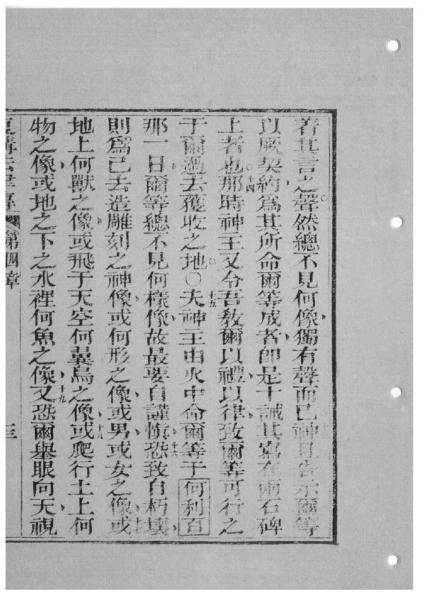 著其言之聲然總不見何像獨有聲而已神且吿示爾等
以厥契約爲其所命爾等成者卽是十誡其寫在兩石碑
上者也十四那時神主又令吾敎爾以禮以律致爾等可行之
于爾過去獲收之地〇十五夫神主由火中命爾等于何利百
那一日爾等總不見何樣像故最要自謹愼十六恐致自朽壞
則爲己去造雕刻之神像或何形之像或男或女之像十七或
地上何獸之像或飛于天空何翼鳥之像十八或爬行土上何
物之像或地之下之水裡何魚之像十九又恐爾舉眼向天視
復講法律傳 第四章 三